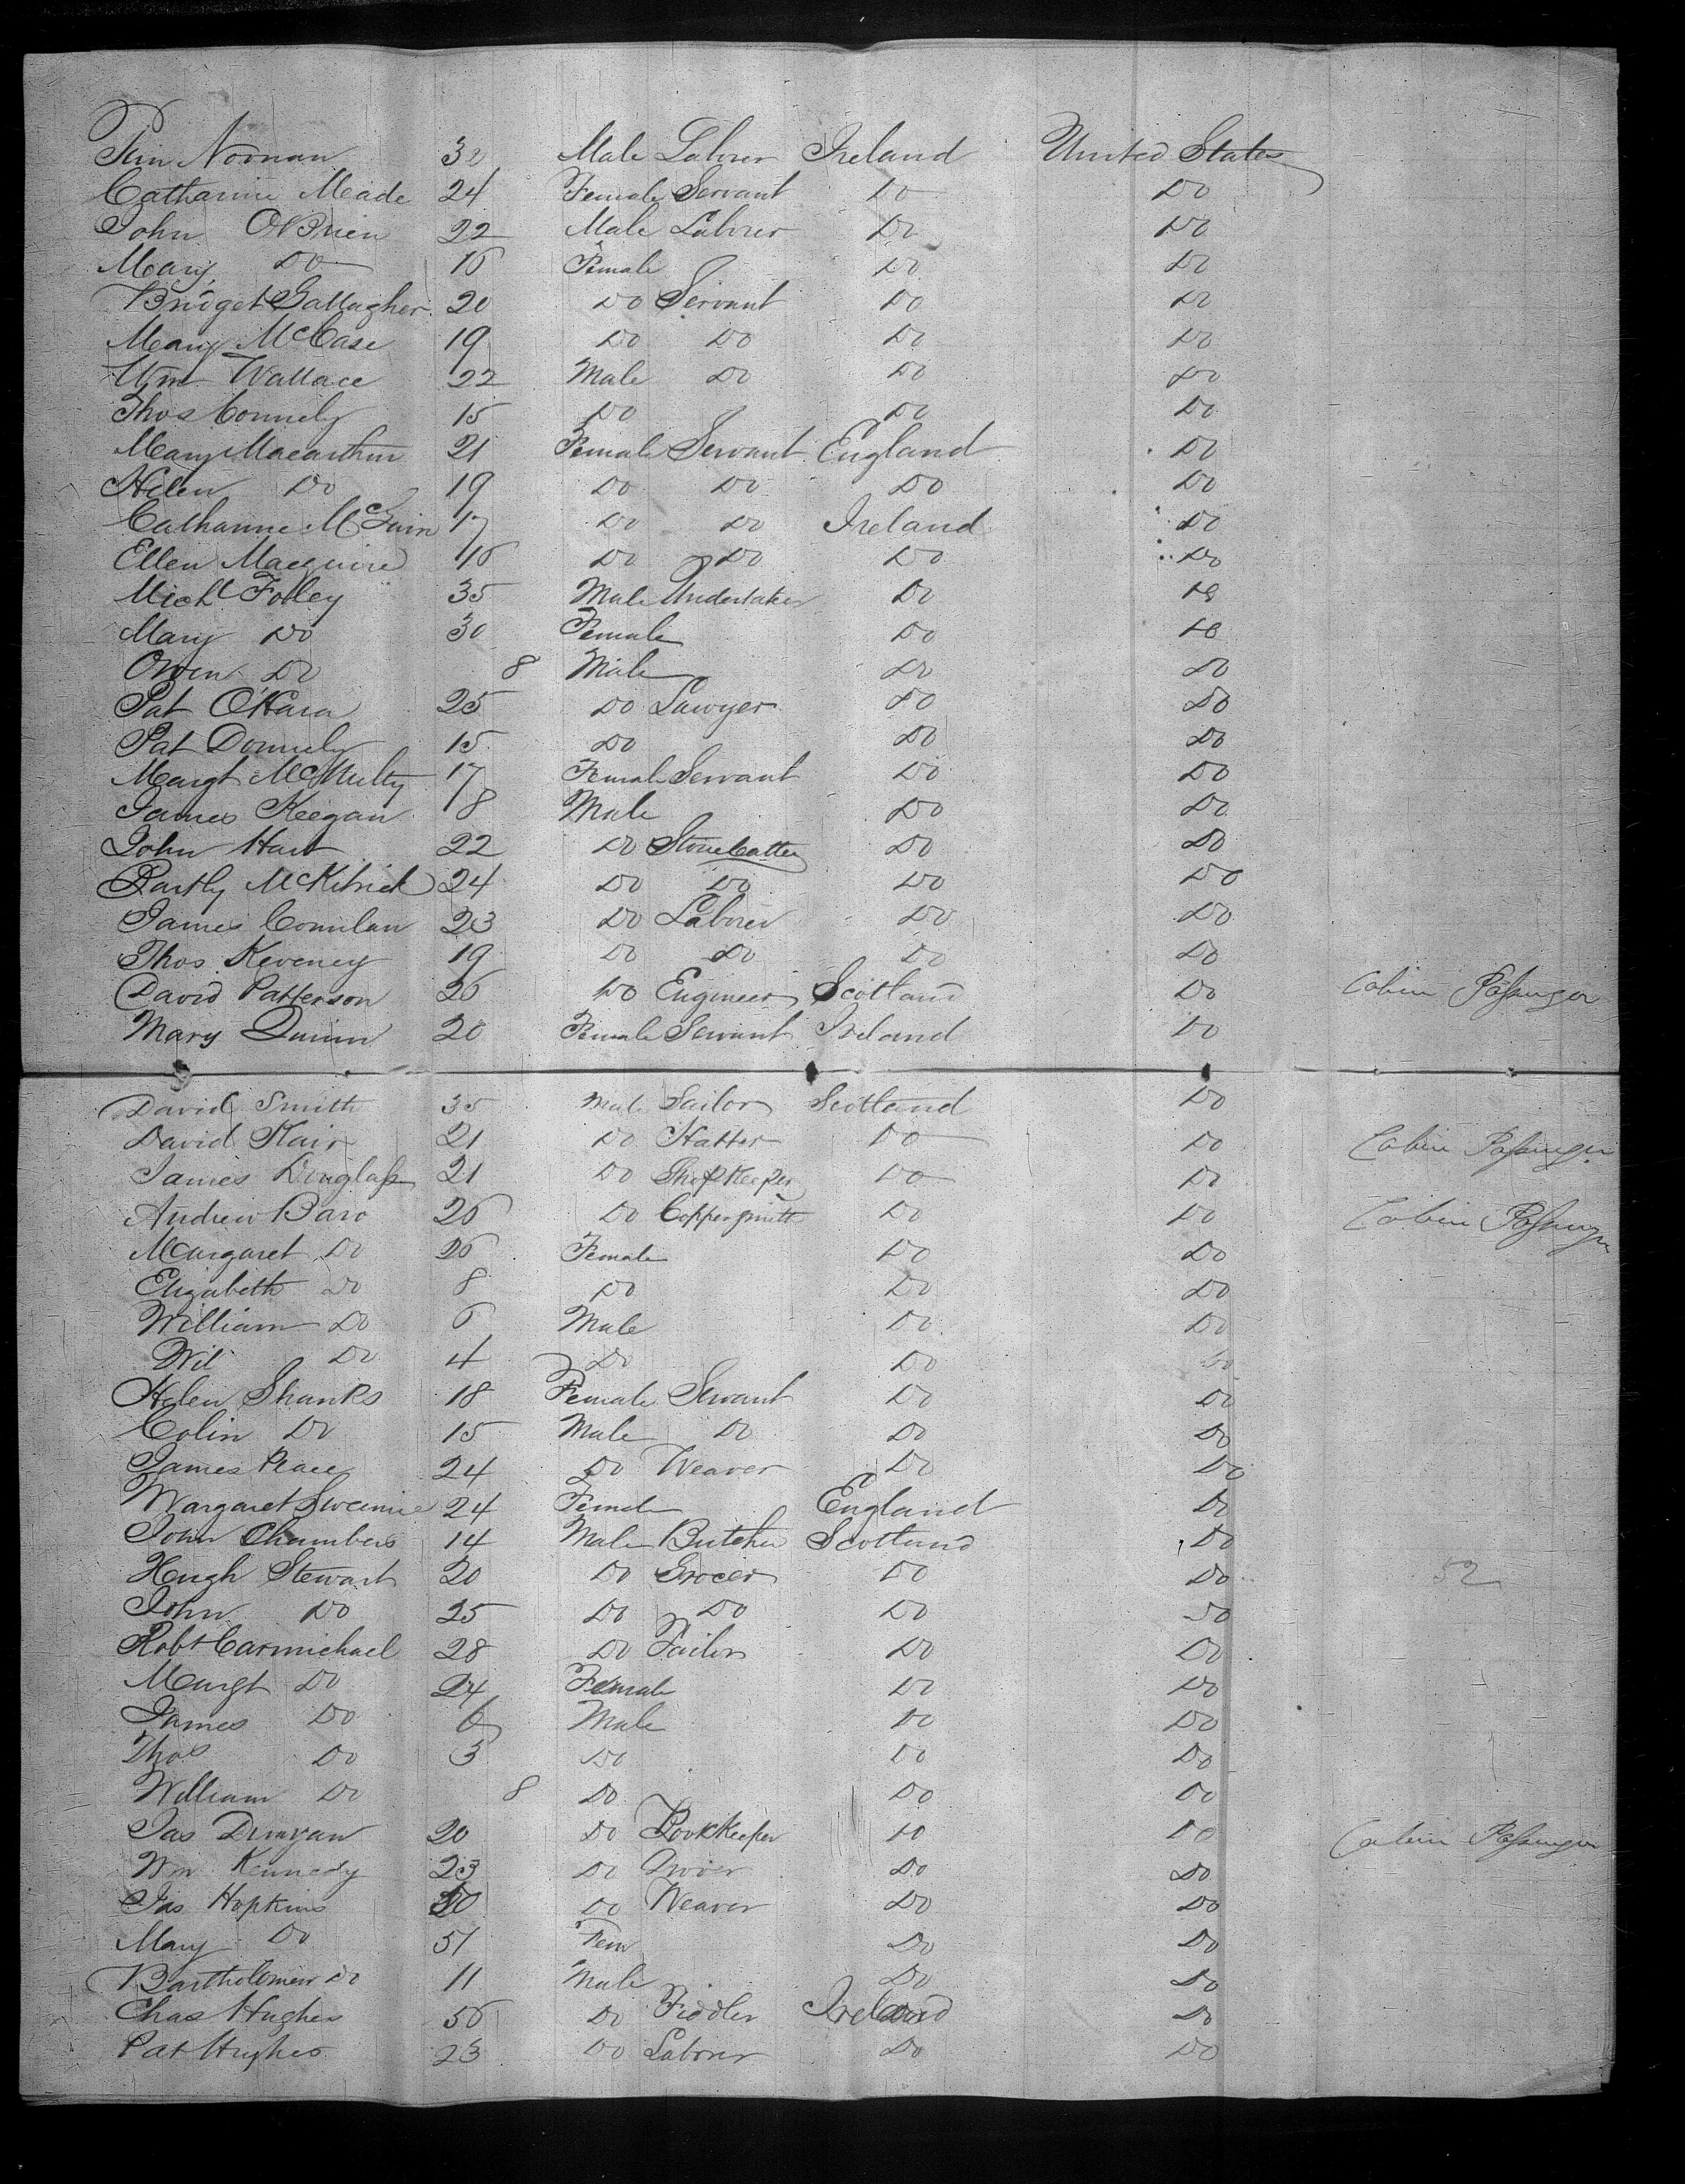 Noonan 32 Male Labrer Ireland United States
Catharine Meade 24 Female Servant Do Do
John OBrien 22 Male Labrer Do Do
Mary Do 16 Female Do Do
Bridget Gallagher 20 Do Servant Do Do
Mary McCase 19 Do Do Do Do
Wm Wallace 22 Male Do Do Do
Thos Connely 15 Do Do Do
Mary Macarthur 21 Female Servant England Do
Helen Do 19 Do Do Do Do
Catharine 17 Do Do Ireland Do
Ellen Macguire 16 Do Do Do Do
Michl Folley 35 Male Undertaker Do Do
Mary Do 30 Female Do Do
Owen Do 8 Male Do Do
Pat O'Hara 25 Do Lawyer Do Do
Pat Donnely 15 Do Do Do
Margt McNulty 17 Female Servant Do Do
James Keegan 18 Male Do Do
John Hart 22 Do Stone Cutter Do Do
McKitrick 24 Do Do Do Do
James 23 Do Labrer Do Do
Thos Keveney 19 Do Do Do Do
David Patterson 26 Do Engineer Scotland Do Cabin Passenger
Mary Quinn 20 Female Servant Ireland Do
David Smith 35 Male Sailor Scotland Do
David 21 Do Hatter Do Do Cabin Passenger
James Douglass 21 Do ShopKeeper Do Do
Andrew 26 Do Coppersmith Do Do Cabin Passenger
Margaret Do 26 Female Do Do
Elizabeth Do 8 Do Do Do
William Do 6 Male Do Do
Do 4 Do Do Do
Helen Shanks 18 Female Servant Do Do
Colin Do 15 Male Do Do Do
James Peace 24 Do Weaver Do Do
Margaret 24 Female England Do
John Chambers 14 Male Butcher Scotland Do
Hugh Stewart 20 Do Grocer Do Do 52
John Do 25 Do Do Do Do
Robt Carmichael 28 Do Tailor Do Do
Margt Do 24 Female Do Do
James Do 6 Male Do Do
Thos Do 3 Do Do Do
William Do 8 Do Do Do
Jas 20 Do BookKeeper Do Do Cabin Passenger
Wm Kennedy 23 Do Do Do
Jas Hopkins 50 Do Weaver Do Do
Mary Do 51 Fem Do Do
Bartholomew Do 11 Male Do Do
Chas Hughes 56 Do Fiddler Ireland Do
Pat Hughes 23 Do Labrer Do Do